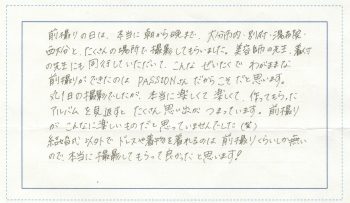 前撮りの日は、本当に朝から晩まで、大分市内・別府・湯布院・
西大分と、たくさんの場所で撮影してもらいました。美容師の先生、着付
の先生にも同行していただいて、こんなぜいたくでわがままな
前撮りができたのはPASSIONさんだからこそだと思います。
丸1日の撮影でしたが、本当に楽しくて楽しくて、作ってもらった
アルバムを見返すとたくさん思い出がつまっています。前撮り
がこんなに楽しいものだと思っていませんでした(笑)
結婚式以外でドレスや着物を着れるのは前撮りくらいしか無い
ので、本当に撮影してもらって良かったと思います!